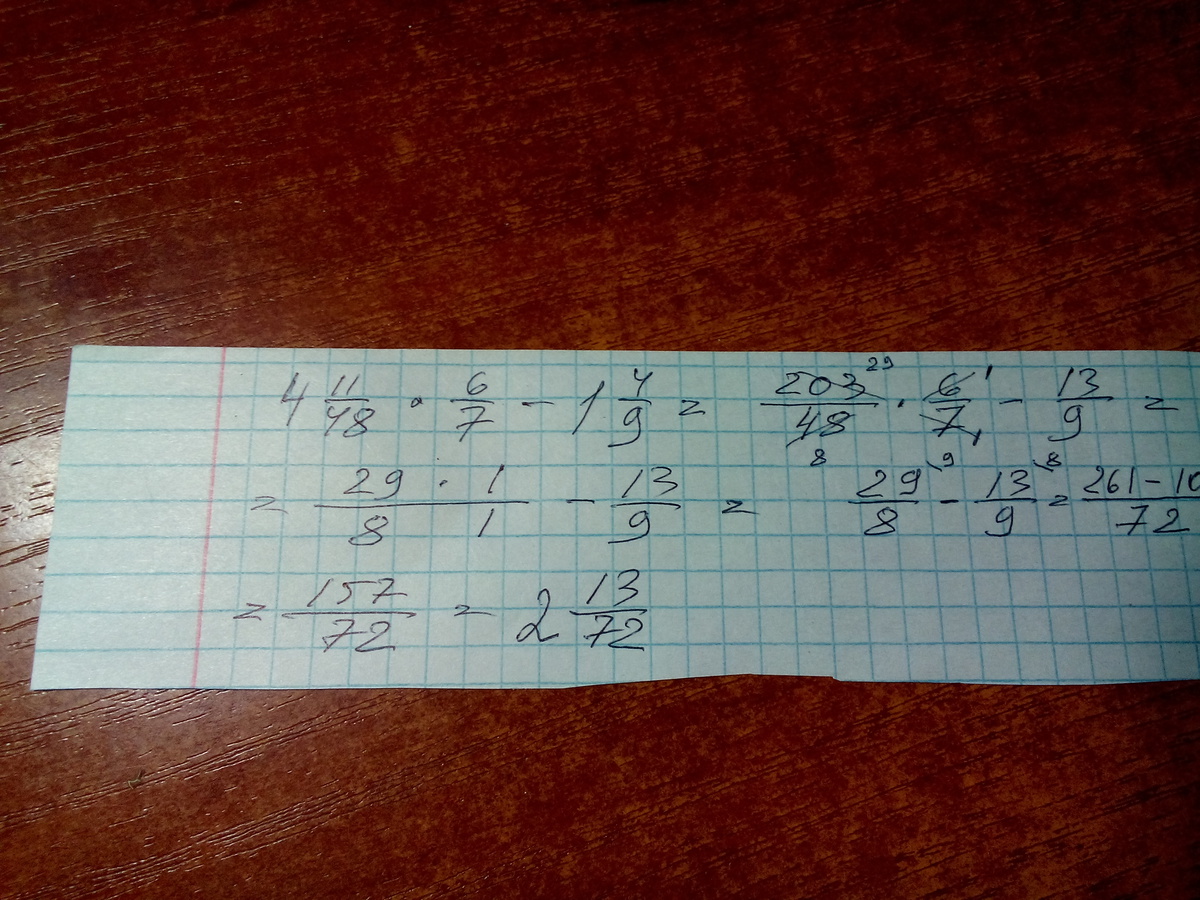 4 11/48 · 6/7 - 1 4/9 = 203/48 29 8 · 6/7 1 1 - 13/9 =
= 29 · 1/8 1 - 13/9 = 29/8 \9 - 13/9 \8 = 261 - 10/72
= 157/72 = 2 13/72